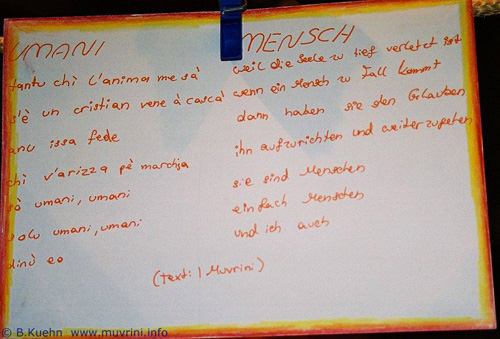 UMANI
tantu chì l'anima me sà
s'è un cristian vene à cascà
anu issa fede
chì v'arizza pè marchja
sò umani, umani
solu umani, umani
dinù eo
MENSCH
weil die Seele zu tief verletzt ist
wenn ein Mensch zu Fall kommt
dann haben sie den Glauben
ihn aufzurichten und weiterzugehen
sie sind Menschen
einfach Menschen
und ich auch
(Text: I Muvrini)
© B.Kuehn www.muvrini.info